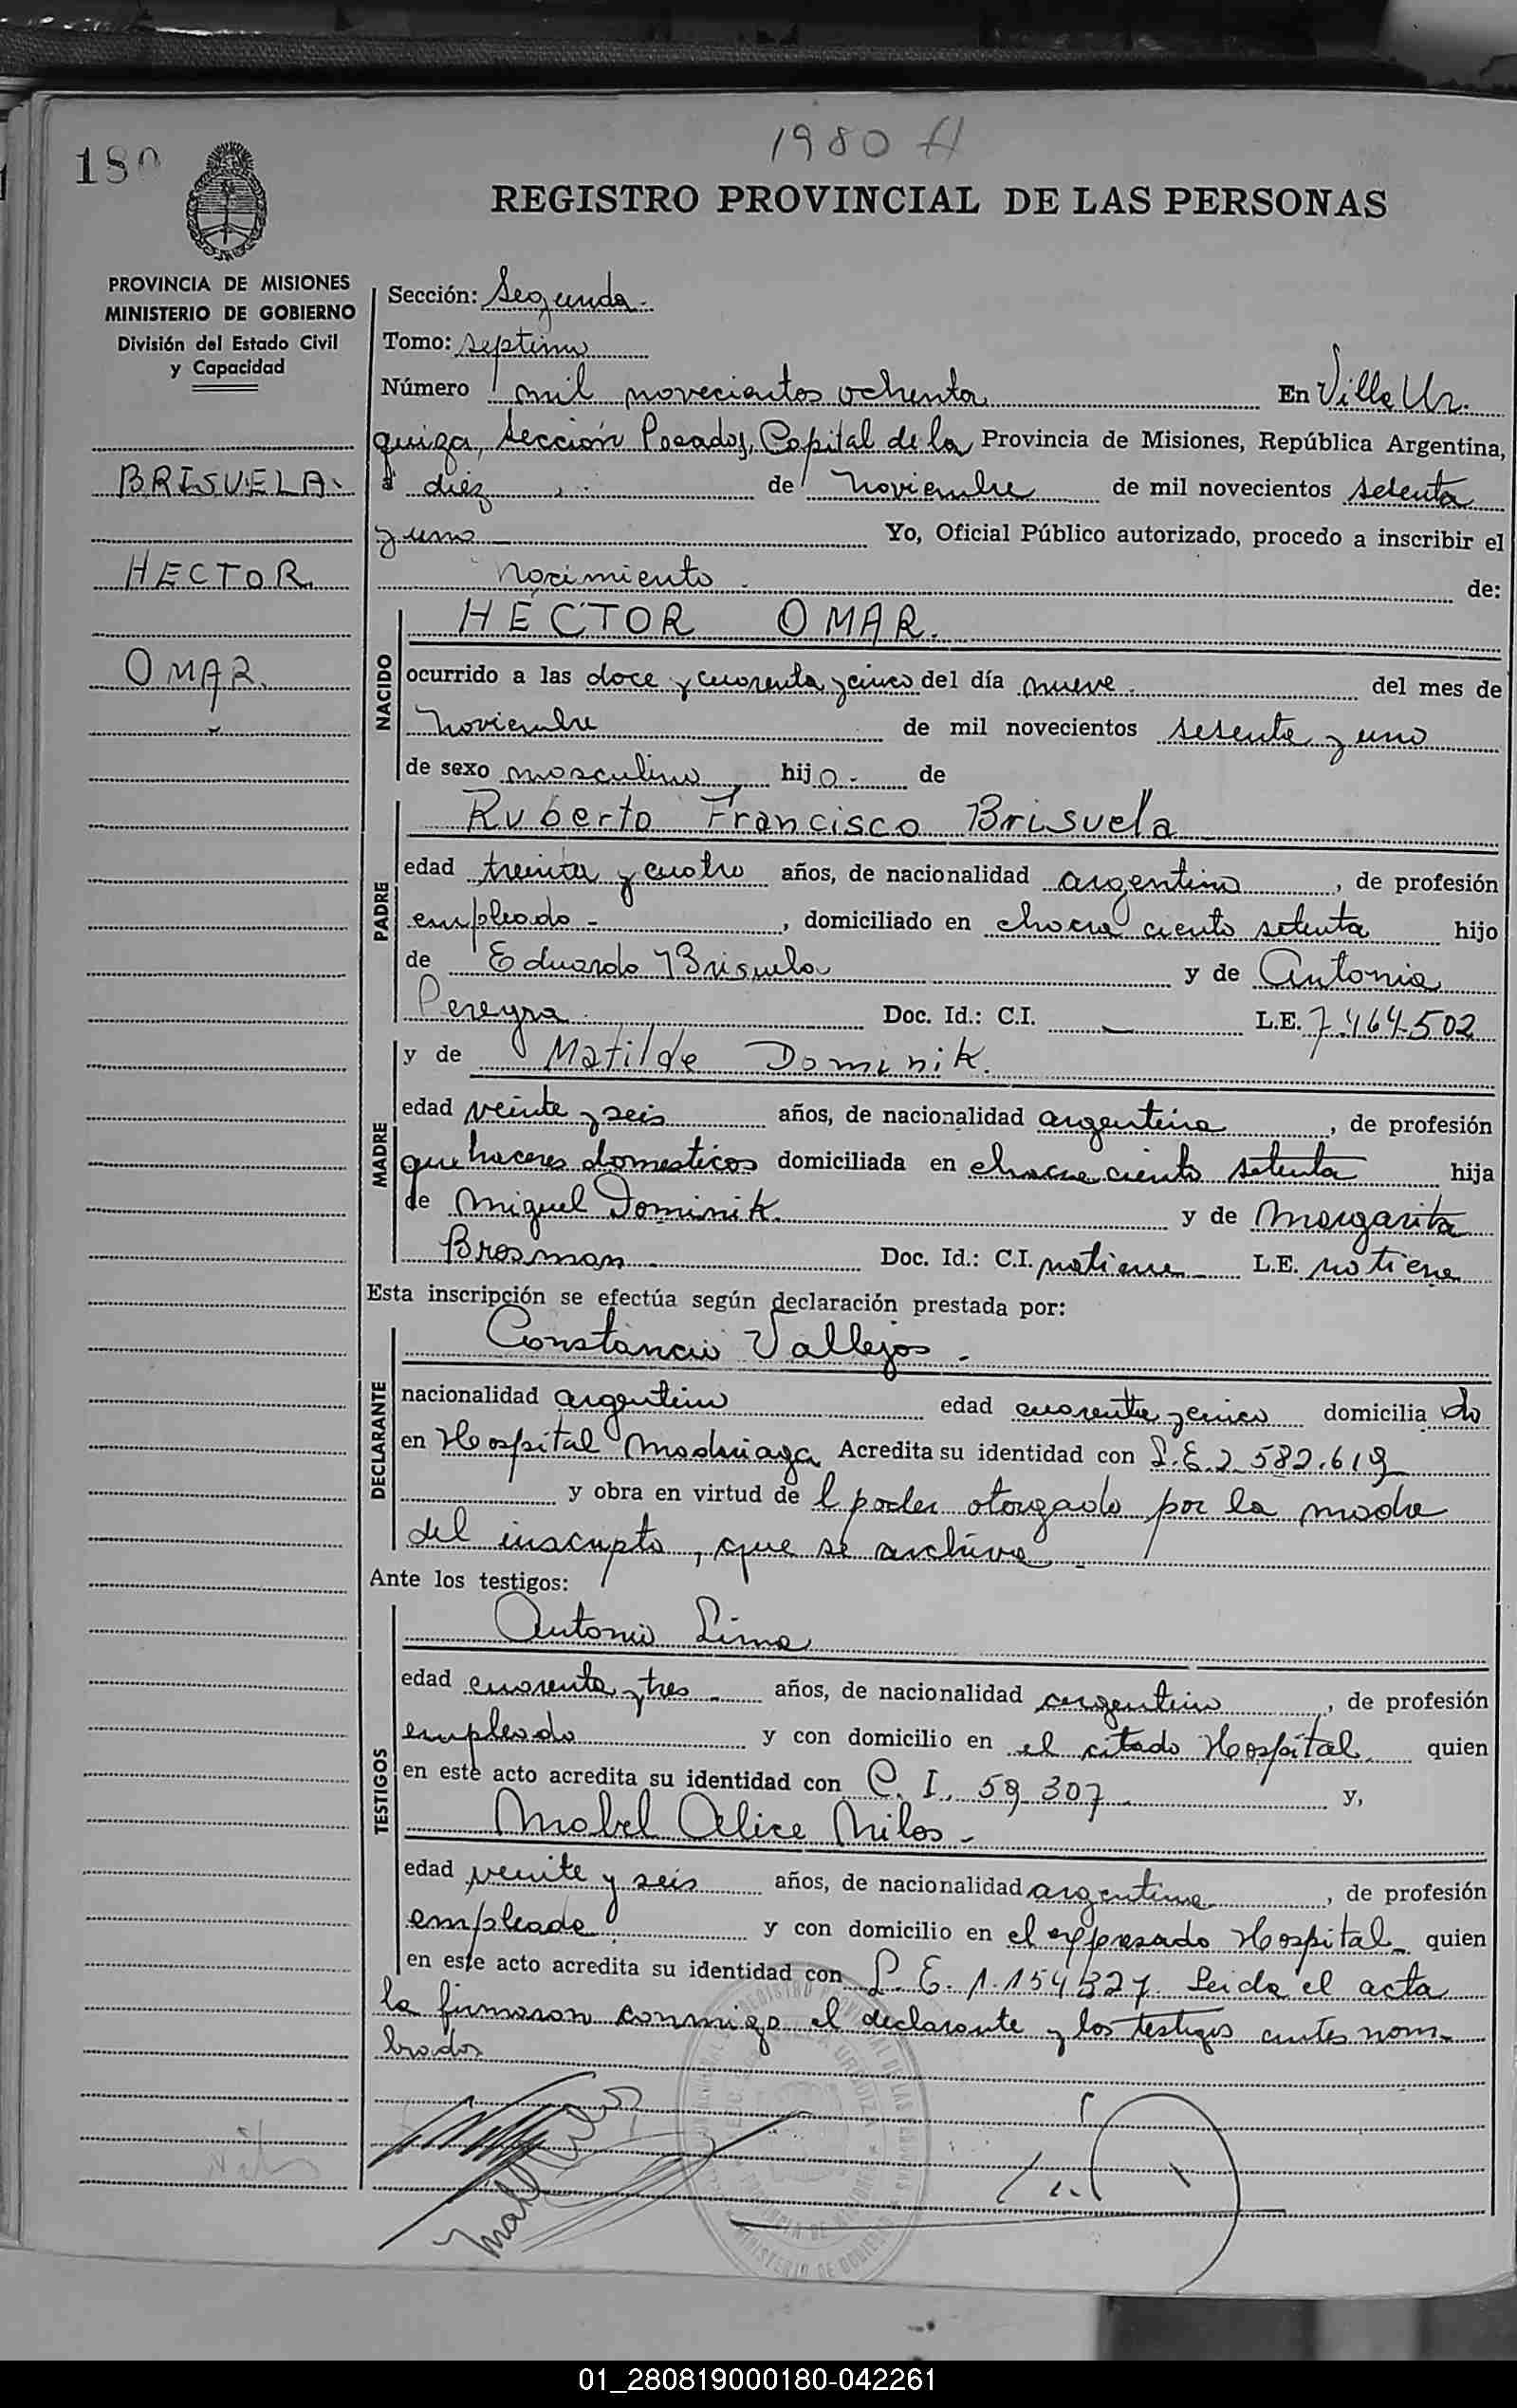 1980 A
180
REGISTRO PROVINCIAL DE LAS PERSONAS
PROVINCIA DE MISIONES
MINISTERIO DE GOBIERNO
División del Estado Civil
y Capacidad
BRISUELA.
HECTOR
OMAR.
Sección: Segunda.
Tomo: septimo
Número mil novecientos ochenta En Villa Ur-
quiza, Sección Posadas, Capital de la Provincia de Misiones, República Argentina,
a diez de Noviembre de mil novecientos setenta
y uno Yo, Oficial Público autorizado, procedo a inscribir el
Nacimiento de:
NACIDO
HECTOR OMAR.
ocurrido a las doce y cuarenta y cinco del día nueve del mes de
Noviembre de mil novecientos setenta y uno
de sexo masculino hijo de
PADRE
Ruberto Francisco Brisuela
edad treinta y cuatro años, de nacionalidad argentino, de profesión
empleado, domiciliado en chacra ciento setenta hijo
de Eduardo Brisuela y de Antonia
Pereyra Doc. Id.: C.I. — L.E. 7.464.502
MADRE
y de Matilde Dominik.
edad veinte y seis años, de nacionalidad argentina, de profesión
quehaceres domesticos domiciliada en chacra ciento setenta hija
de Miguel Dominik y de Margarita
Brosman Doc. Id.: C.I. no tiene L.E. no tiene
Esta inscripción se efectúa según declaración prestada por:
DECLARANTE
Constancio Vallejos
nacionalidad argentino edad cuarenta y cinco domicilia do
en Hospital Madariaga Acredita su identidad con L.E. 2.582.619
y obra en virtud de l poder otorgado por la madre
del inscripto, que se archiva
Ante los testigos:
TESTIGOS
Antonio Lima
edad cuarenta y tres años, de nacionalidad argentino, de profesión
empleado y con domicilio en el citado Hospital quien
en este acto acredita su identidad con C. I. 59.307 y,
Mabel Alice Milos
edad veinte y seis años, de nacionalidad argentina, de profesión
empleada y con domicilio en el expresado Hospital quien
en este acto acredita su identidad con L. E. 1.154.327 Leida el acta
la firmaron conmigo el declarante y los testigos antes nom-
brados
01_280819000180-042261